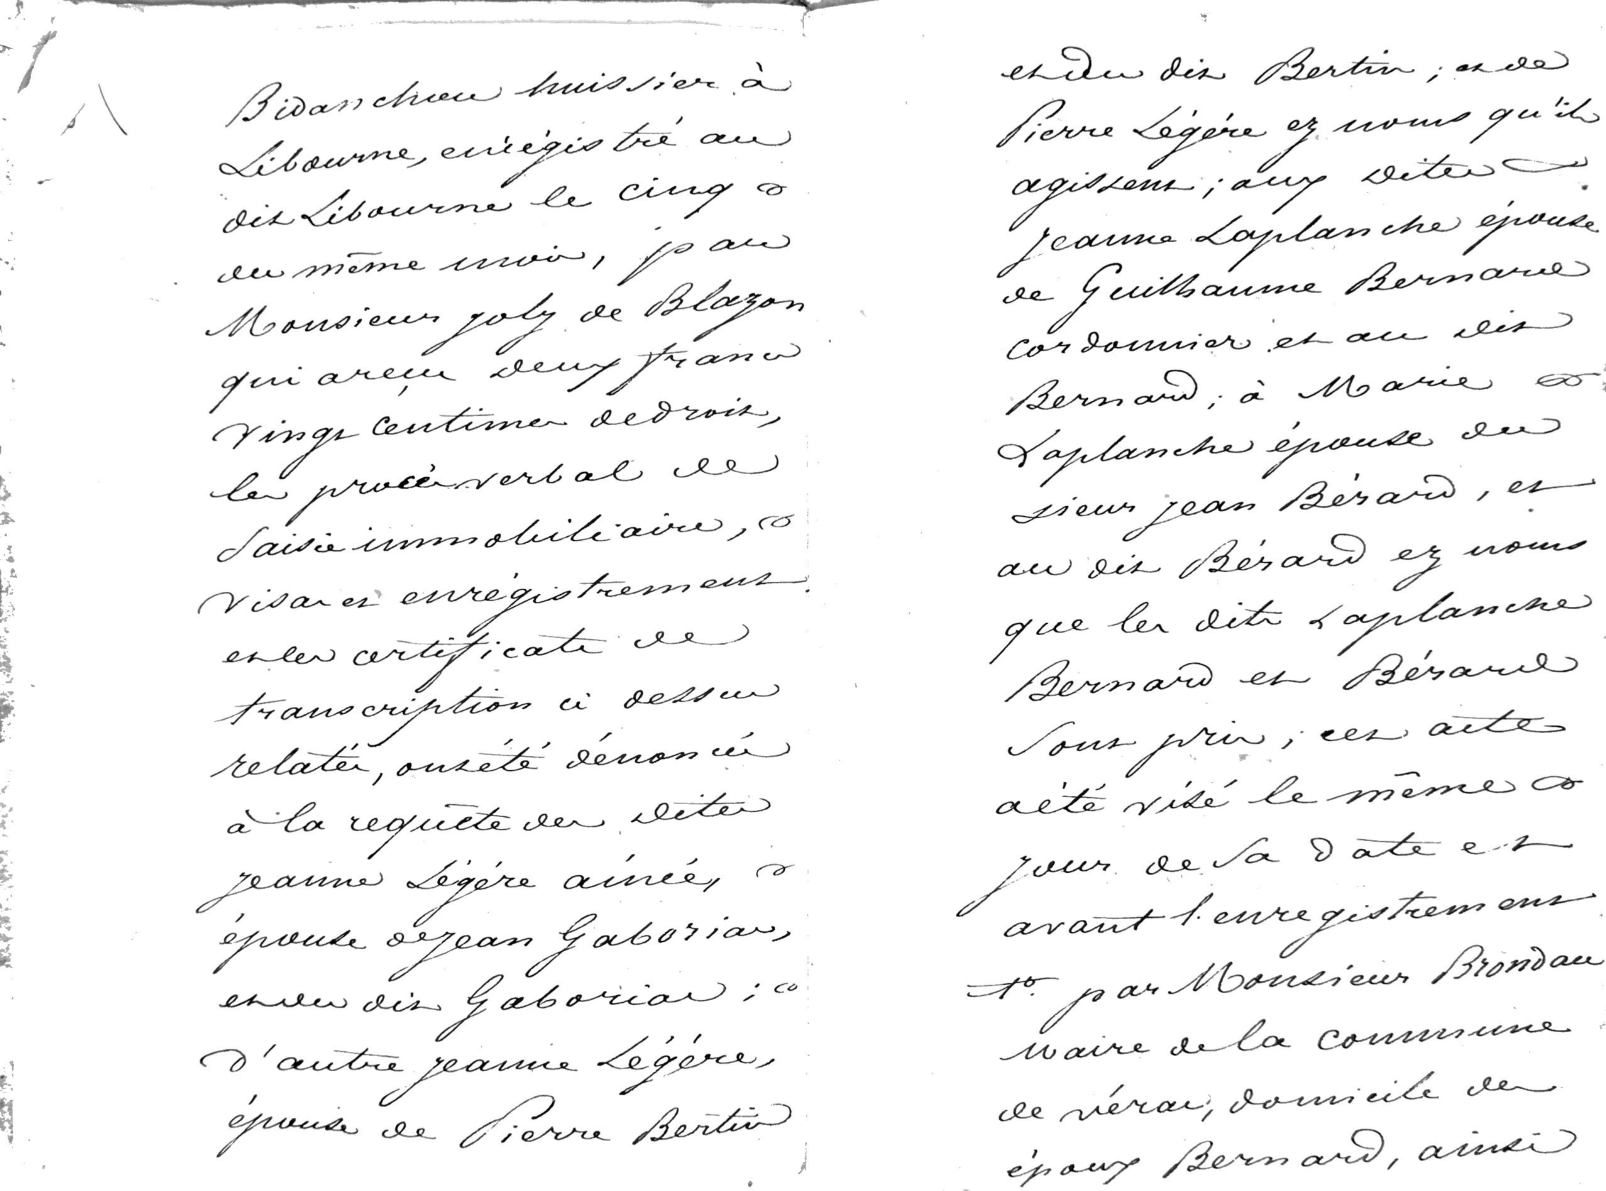 Bidanchau huissier à
Libourne, enrégistré au
dit Libourne le cinq
du même mois, par
Monsieur Joly de Blazon
qui a reçu deux francs
vingt centimes de droit,
les procès verbal de
Saisie immobiliaire,
visa et enrégistrement
et les certificats de
transcription ci dessus
relatés, ont été dénoncés
à la requête des dites
Jeanne Légére ainée,
épouse de Jean Gaboriau,
et du dit Gaboriau ;
d'autre Jeanne Légére,
épouse de Pierre Bertin
et du dit Bertin ; et de
Pierre Légére ez noms qu'ils
agissent ; aux dites
Jeanne Laplanche épouse
de Guilhaume Bernard
cordonnier et au dit
Bernard ; à Marie
Laplanche épouse du
sieur Jean Bérard, et
au dit Bérard ez noms
que les dits Laplanche
Bernard et Bérard
Sont pris ; cet acte
a été visé le même
jour de sa date et
avant l'enregistrement
1o. par Monsieur Brondau
Maire de la commune
de vérac, domicile des
époux Bernard, ainsi